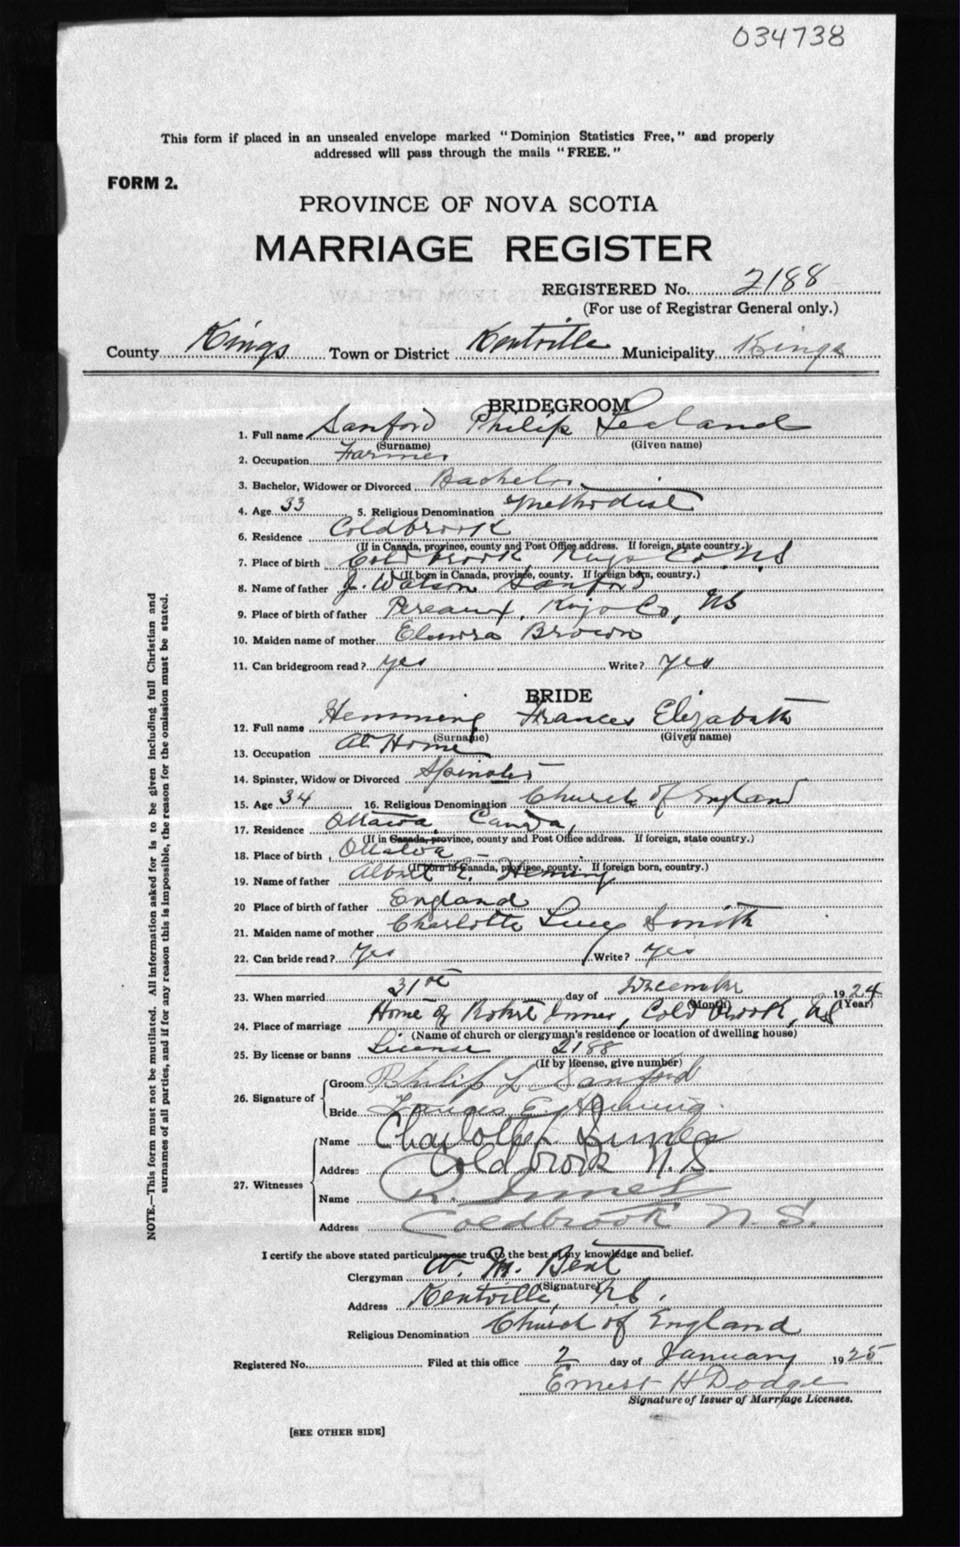 034738
This form if placed in an unsealed envelope marked "Dominion Statistics Free," and properly
addressed will pass through the mails "FREE."
FORM 2.
PROVINCE OF NOVA SCOTIA
MARRIAGE REGISTER
REGISTERED No. 2188
(For use of Registrar General only.)
County Kings Town or District Kentville Municipality Kings
BRIDEGROOM
1. Full name Sanford Philip Lealand
(Surname) (Given name)
2. Occupation Farmer
3. Bachelor, Widower or Divorced Bachelor
4. Age 33 5. Religious Denomination Methodist
6. Residence Coldbrook
(If in Canada, province, county and Post Office address. If foreign, state country.)
7. Place of birth Coldbrook Kings Co. N.S
(If born in Canada, province, county. If foreign born, country.)
8. Name of father J. Watson Sanford
9. Place of birth of father Pereaux, Kings Co, NS
10. Maiden name of mother Brown
11. Can bridegroom read? yes Write? yes
BRIDE
12. Full name Hemming Frances Elizabeth
(Surname) (Given name)
13. Occupation At Home
14. Spinster, Widow or Divorced Spinster
15. Age 34 16. Religious Denomination Church of England
17. Residence Ottawa Canada,
(If in Canada, province, county and Post Office address. If foreign, state country.)
18. Place of birth Ottawa
(If born in Canada, province, county. If foreign born, country.)
19. Name of father Albert E. Heming
20 Place of birth of father England
21. Maiden name of mother Charlotte Lucy Smith
22. Can bride read? Yes Write? Yes
23. When married 31st day of December 1924
(Month) (Year)
24. Place of marriage Home of Robert Innes, Coldbrook, NS
(Name of church or clergyman's residence or location of dwelling house)
25. By license or banns License 2188
(If by license, give number)
26. Signature of
Groom Philip L Sanford
Bride Frances E. Hemming.
27. Witnesses
Name Charlotte Innes
Address Coldbrook N.S
Name R. Innes
Address Coldbrook N.S.
I certify the above stated particulars are true to the best of my knowledge and belief.
Clergyman W. M. Bent
(Signature)
Address Kentville, N.S.
Religious Denomination Church of England
Registered No. Filed at this office 2 day of January 1925
Ernest H Dodge
Signature of Issuer of Marriage Licenses.
[SEE OTHER SIDE]
NOTE.—This form must not be mutilated. All information asked for is to be given including full Christian and
surnames of all parties, and if for any reason this is impossible, the reason for the omission must be stated.